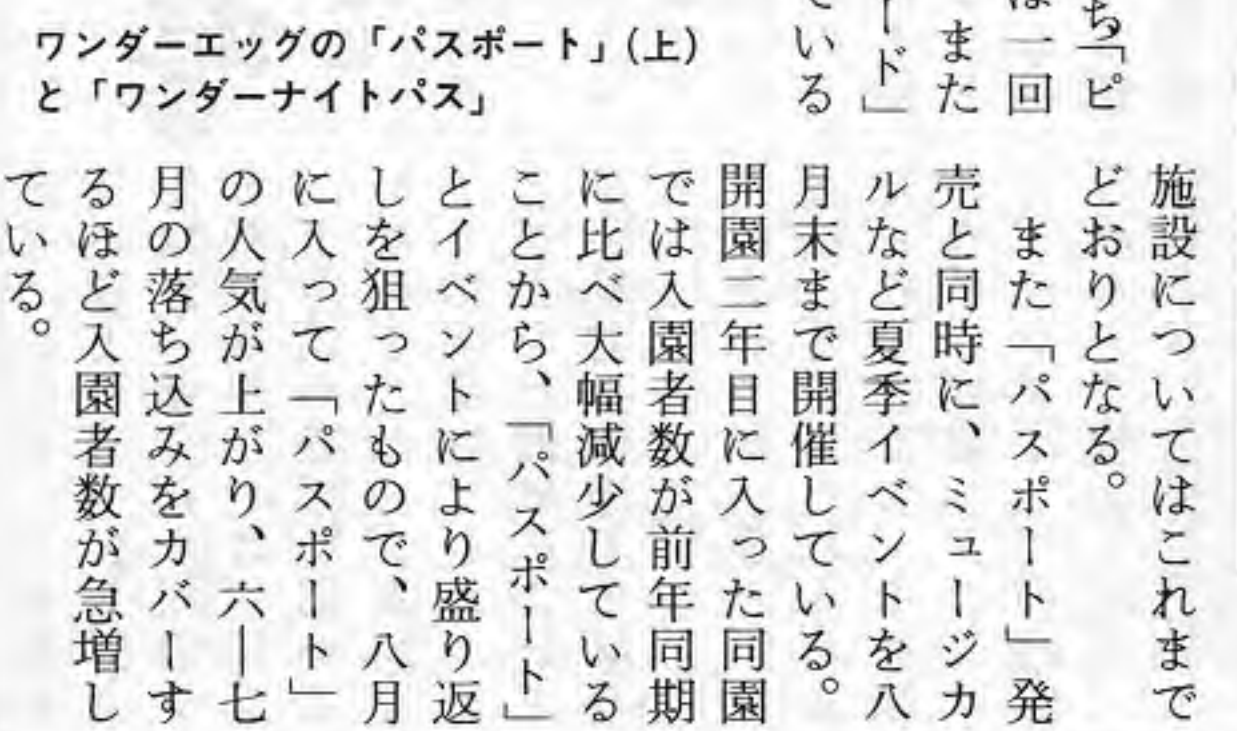 ち「ピ
は一回
また
ード」
ている
ワンダーエッグの「パスポート」(上)
と「ワンダーナイトパス」
施設についてはこれまで
どおりとなる。
また「パスポート」発
売と同時に、ミュージカ
ルなど夏季イベントを八
月末まで開催している。
開園二年目に入った同園
では入園者数が前年同期
に比べ大幅減少している
ことから、「パスポート」
とイベントにより盛り返
しを狙ったもので、八月
に入って「パスポート」
の人気が上がり、六―七
月の落ち込みをカバーす
るほど入園者数が急増し
ている。